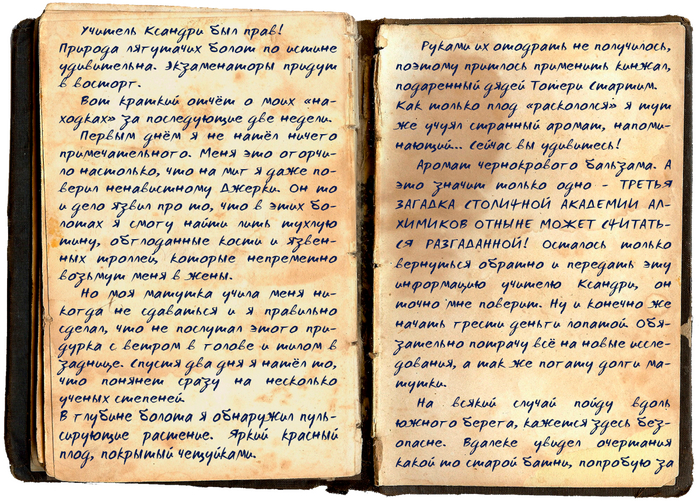 Учитель Ксандри был прав!
Природа лягушачих болот по истине
удивительна. Экзаменаторы придут
в восторг.
Вот краткий отчёт о моих «на-
ходках» за последующие две недели.
Первым днём я не нашёл ничего
примечательного. Меня это огорчи-
ло настолько, что на миг я даже по-
верил ненавистному Джерки. Он то
и дело язвил про то, что в этих бо-
лотах я смогу найти лишь тухлую
тину, обглоданные кости и язвен-
ных троллей, которые непременно
возьмут меня в жены.
Но моя матушка учила меня ни-
когда не сдаваться и я правильно
сделал, что не послушал этого при-
дурка с ветром в голове и шилом в
заднице. Спустя два дня я нашёл то,
что понянет сразу на несколько
ученых степеней.
В глубине болота я обнаружил пуль-
сирующие растение. Яркий красный
плод, покрытый чешуйками.
Руками их отодрать не получилось,
поэтому пришлось применить кинжал,
подаренный дядей Тошери Старшим.
Как только плод «раскололся» я тут
же учуял странный аромат, напоми-
нающий... сейчас вы удивитесь!
Аромат чернокрового бальзама. А
это значит только одно - ТРЕТЬЯ
ЗАГАДКА СТОЛИЧНОЙ АКАДЕМИИ АЛ-
ХИМИКОВ ОТНЫНЕ МОЖЕТ СЧИТАТЬ-
СЯ РАЗГАДАННОЙ! Осталось только
вернуться обратно и передать эту
информацию учителю Ксандри, он
точно мне поверит. Ну и конечно же
начать грести деньги лопатой. Обя-
зательно потрачу всё на новые иссле-
дования, а так же погашу долги ма-
тушки.
На всякий случай пойду вдоль
южного берега, кажется здесь без-
опасне. Вдалеке увидел очертания
какой то старой башни, попробую за